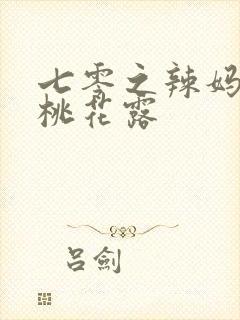 七零之辣妈
桃花露
吕剑